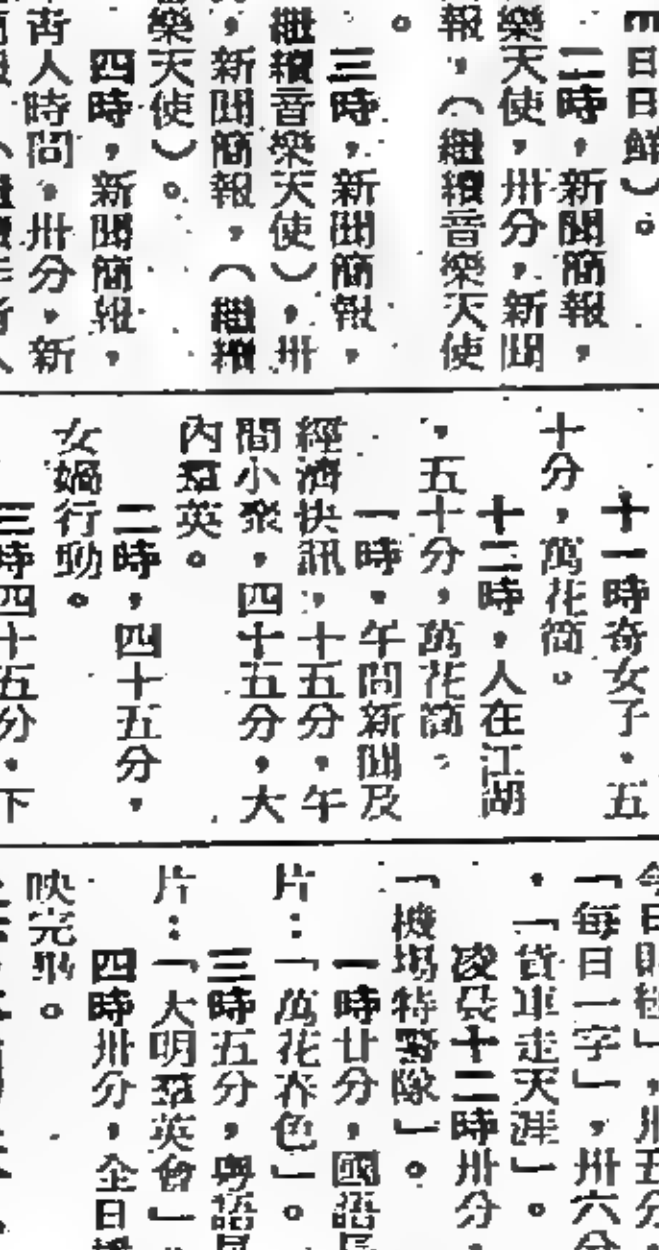 日日鮮）。
二時，新聞簡報，
樂天使，卅分，新聞
報，（繼續音樂天使
。
三時，新聞簡報，
繼續音樂天使），卅
，新聞簡報，（繼續
樂天使）。
四時，新聞簡報，
青人時間，卅分，新
十一時奇女子，五
十分，萬花筒。
十二時，人在江湖
，五十分，萬花筒。
一時，午間新聞及
經濟快訊，十五分，午
間小聚，四十五分，大
內羣英。
二時，四十五分，
女媧行動。
三時四十五分，下
今日財經」，卅五分
「每日一字」，卅六分
，「貨車走天涯」。
凌晨十二時卅分，
「機場特警隊」。
一時廿分，國語
片：「萬花春色」。
三時五分，粵語
片：「大明羣英會」。
四時卅分，全日
映完畢。